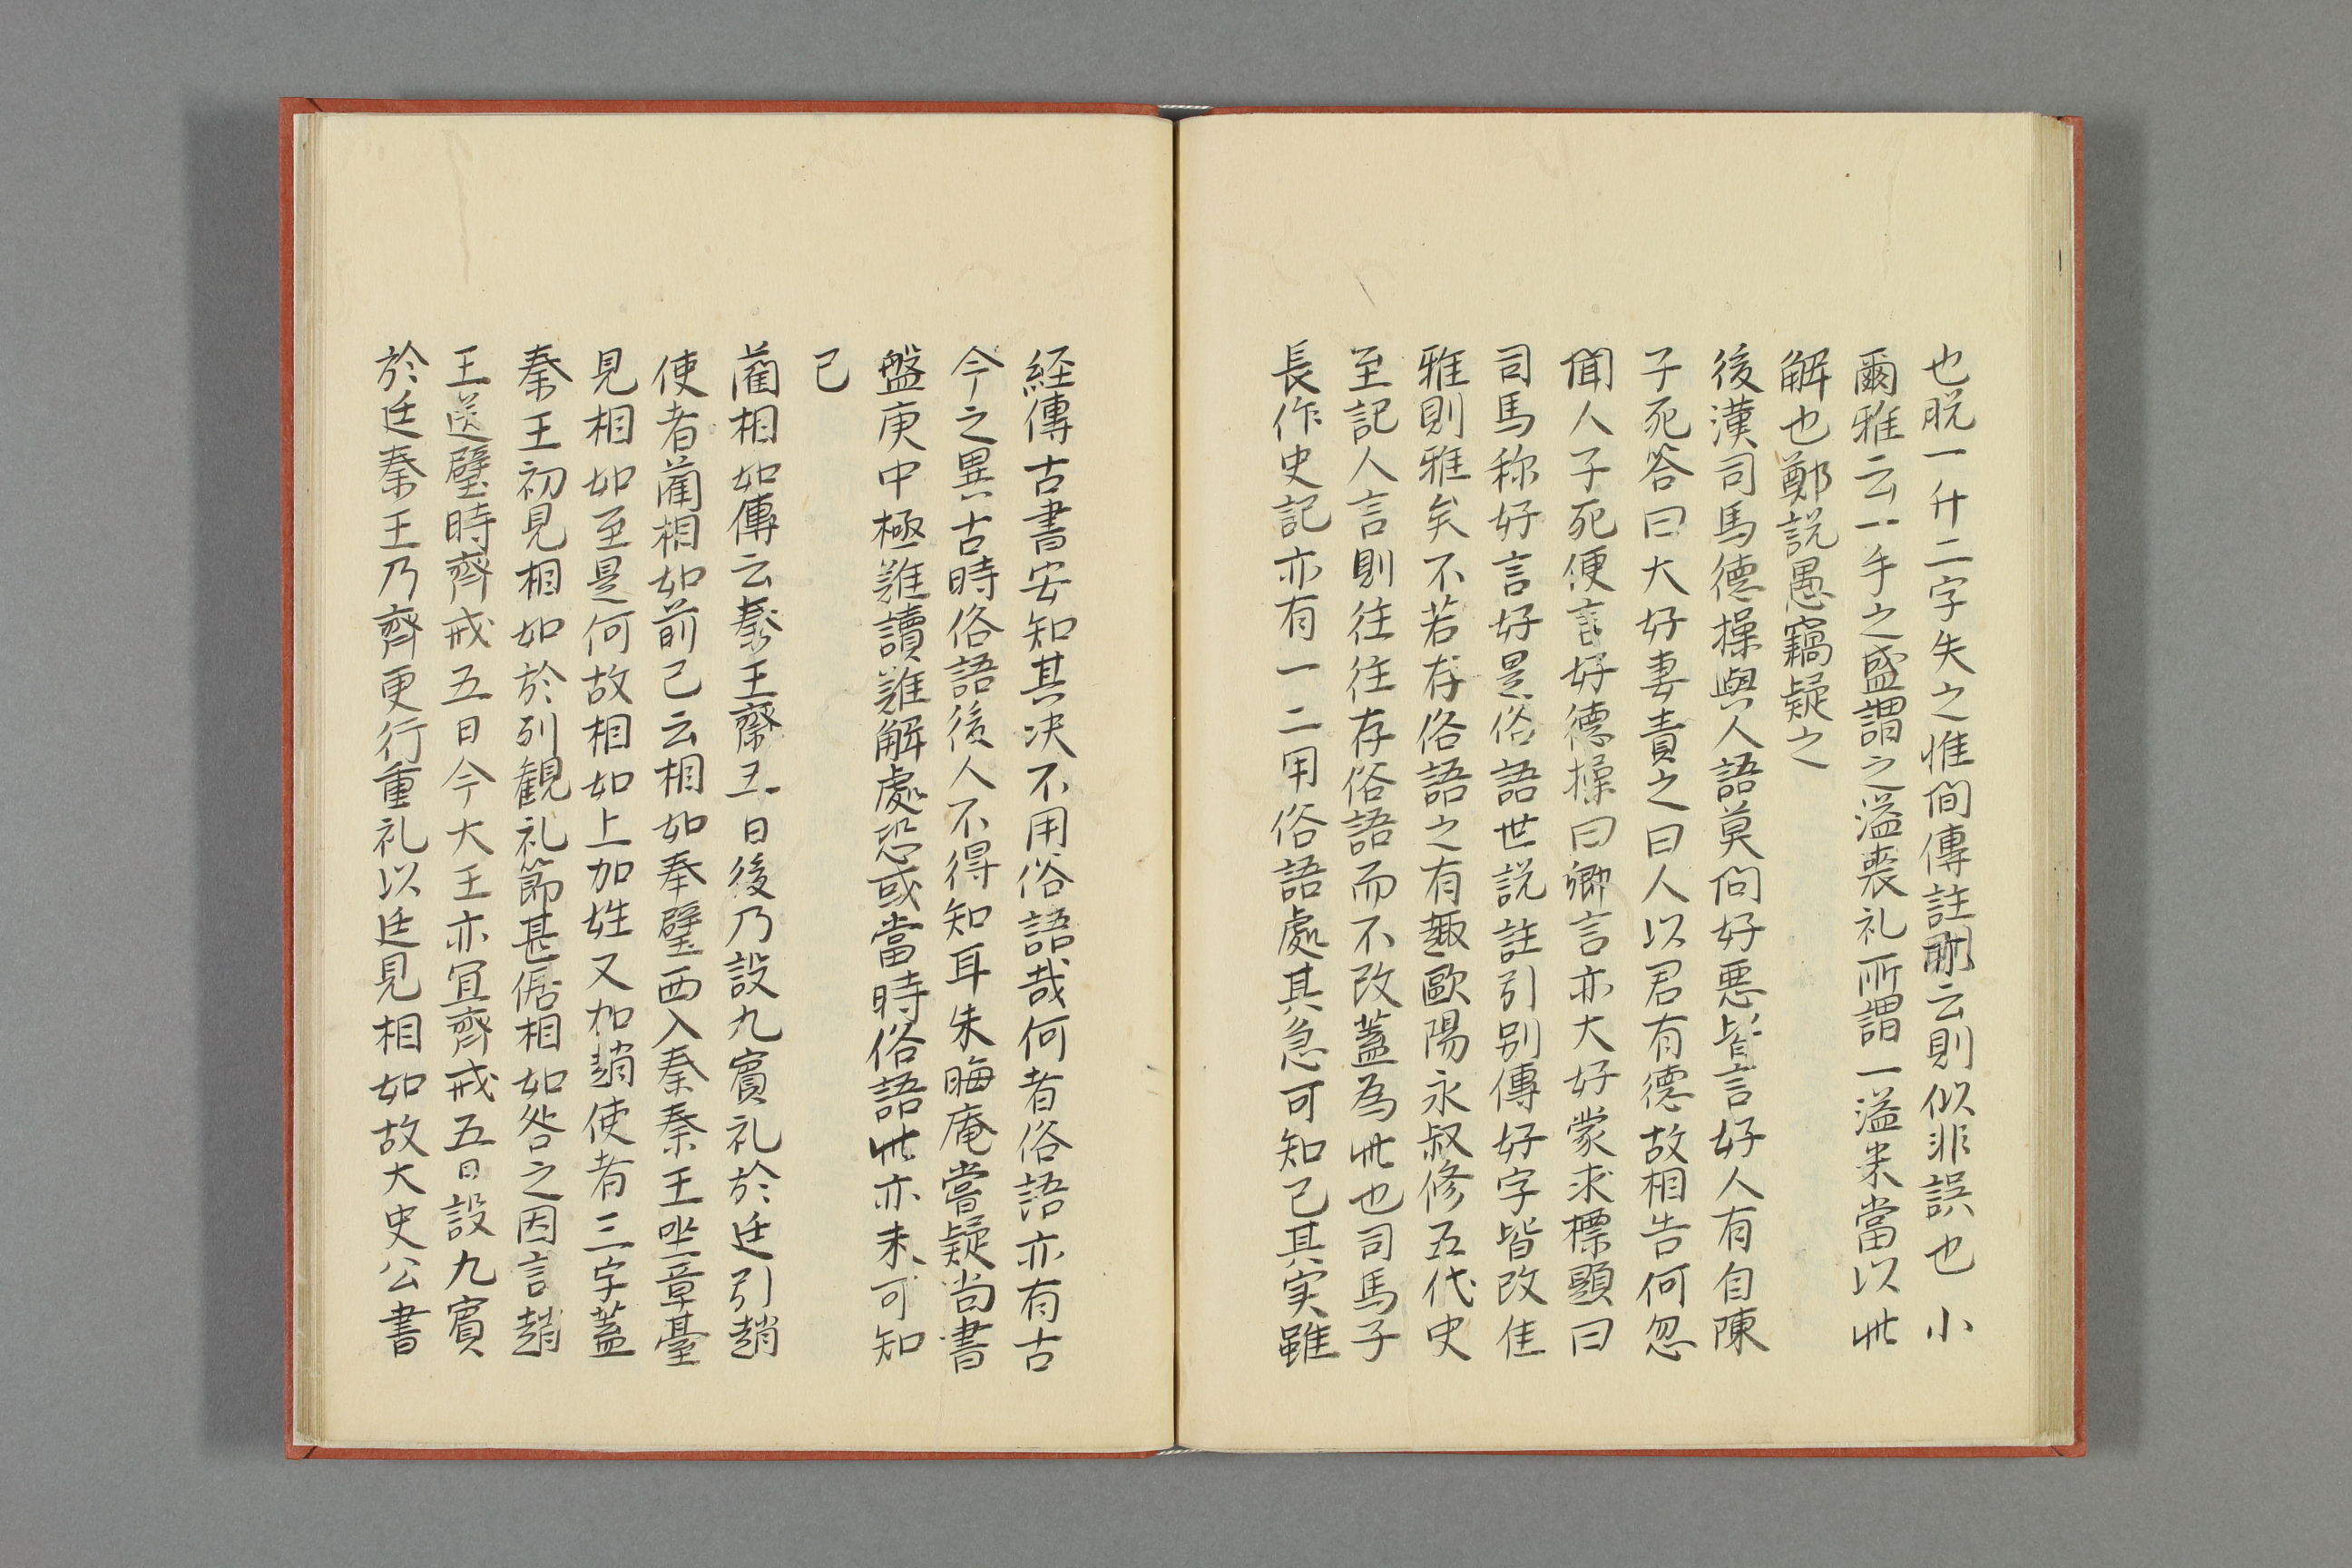 也脱一升二字失之惟間傳註所云則似非誤也小
爾雅云一手之盛謂之溢喪礼所謂一溢米當以此
解也鄭説愚竊疑之
後漢司馬德操與人語莫問好悪皆言好人有自陳
子死答曰大好妻責之曰人以君有德故相告何忽
聞人子死便言好德操曰卿言亦大好蒙求標題曰
司馬称好言好是俗語世説註引別傳好字皆改佳
雅則雅矣不若存俗語之有趣歐陽永叔修五代史
至記人言則往往存俗語而不改蓋為此也司馬子
長作史記亦有一二用俗語處其急可知已其実雖
経傳古書安知其决不用俗語哉何者俗語亦有古
今之異古時俗語後人不得知耳朱晦庵嘗疑尚書
盤庚中極難讀難解處恐或當時俗語此亦未可知
已
藺相如傳云秦王齋五日後乃設九賓礼於廷引趙
使者藺相如前已云相如奉璧西入秦秦王坐章臺
見相如至是何故相如上加姓又加趙使者三字蓋
秦王初見相如於列観礼節甚倨相如咎之因言趙
王送璧時齊戒五日今大王亦宜齊戒五日設九賓
於廷秦王乃齊更行重礼以廷見相如故大史公書